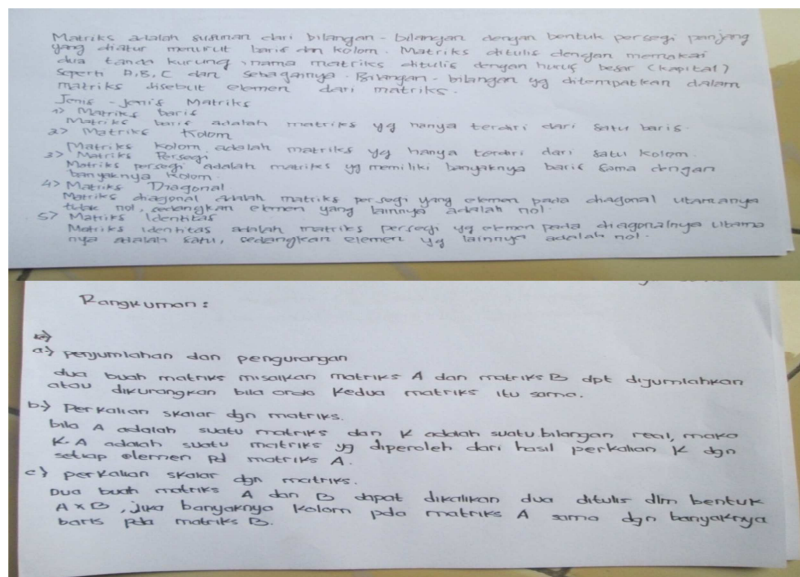 Matriks adalah susunan dari bilangan - bilangan dengan bentuk persegi panjang
yang diatur menurut baris dan kolom. Matriks ditulis dengan memakai
dua tanda kurung, nama matriks ditulis dengan huruf besar (kapital)
seperti A, B, C dan sebagainya. Bilangan - bilangan yg ditempatkan dalam
matriks disebut elemen dari matriks.
Jenis - jenis Matriks
1) Matriks baris
Matriks baris adalah matriks yg hanya terdiri dari satu baris.
2) Matriks Kolom
Matriks kolom adalah matriks yg hanya terdiri dari satu kolom.
3) Matriks Persegi
Matriks persegi adalah matriks yg memiliki banyaknya baris sama dengan
banyaknya kolom.
4) Matriks Diagonal
Matriks diagonal adalah matriks persegi yang elemen pada diagonal utamanya
tidak nol, sedangkan elemen yang lainnya adalah nol.
5) Matriks Identitas
Matriks identitas adalah matriks persegi yg elemen pada diagonalnya utama
nya adalah satu, sedangkan elemen yg lainnya adalah nol.
Rangkuman :
a) penjumlahan dan pengurangan
dua buah matriks misalkan matriks A dan matriks B dpt dijumlahkan
atau dikurangkan bila ordo kedua matriks itu sama.
b) Perkalian skalar dgn matriks.
bila A adalah suatu matriks dan K adalah suatu bilangan real, maka
K.A adalah suatu matriks yg diperoleh dari hasil perkalian K dgn
setiap elemen pd matriks A.
c) perkalian skalar dgn matriks.
Dua buah matriks A dan B dapat dikalikan dua ditulis dlm bentuk
A x B, jika banyaknya kolom pda matriks A sama dgn banyaknya
baris pda matriks B.